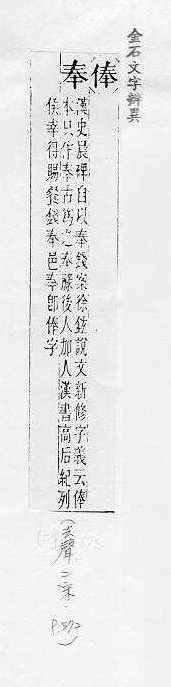 金石文字辨異
俸
奉
漢史晨碑自以奉錢案徐鉉說文新修字義云俸
本只作奉古爲之奉祿後人加人漢書高后紀列
侯幸得賜餐錢奉邑奉卽俸字
(去聲二宋.
P.592)